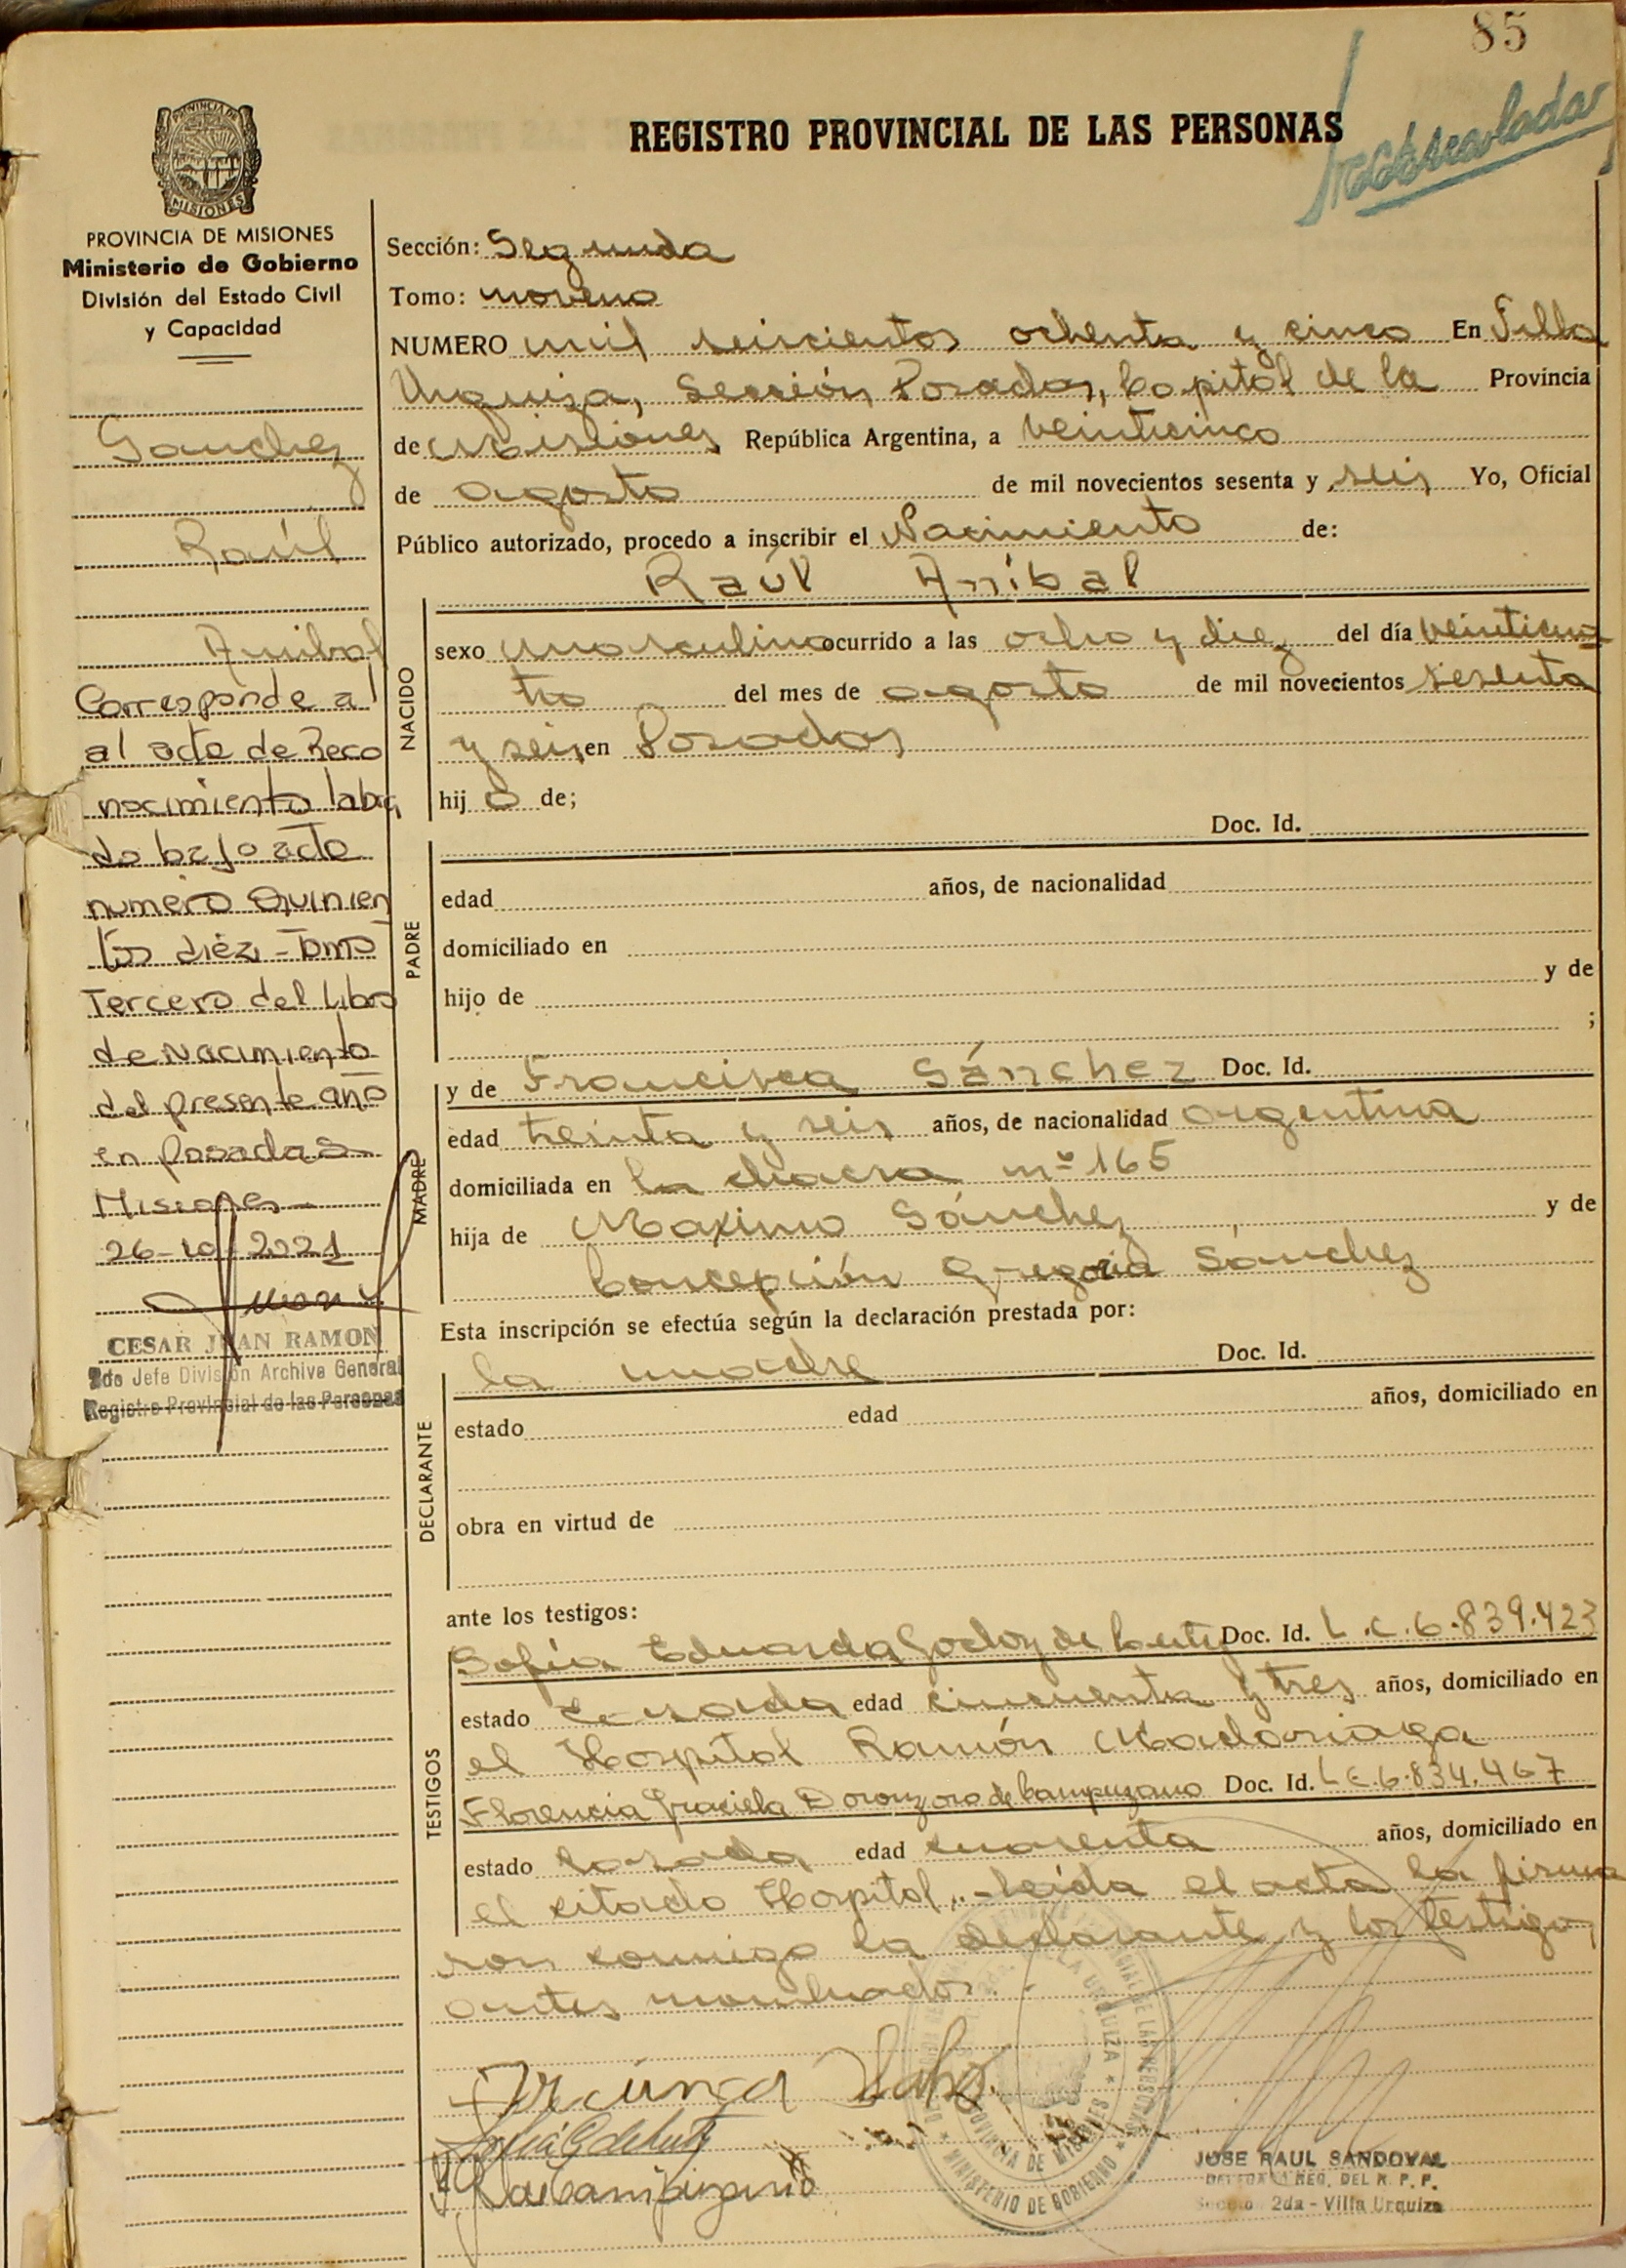 85
REGISTRO PROVINCIAL DE LAS PERSONAS
PROVINCIA DE
MISIONES
PROVINCIA DE MISIONES
Ministerio de Gobierno
División del Estado Civil
y Capacidad
Sanchez
Raúl
Anibal
Corresponde al
al acta de Reco
nocimiento labra
do bajo acta
numero Quinien
tos diez - Tomo
Tercero del Libro
de Nacimiento
del presente año
en Posadas
Misiones
26-10-2021
CESAR JUAN RAMON
2do Jefe División Archivo General
Registro Provincial de las Personas
Sección: Segunda
Tomo: noveno
NUMERO mil seiscientos ochenta y cinco En Villa
Urquiza, Sección Posadas, Capital de la Provincia
de Misiones República Argentina, a veinticinco
de agosto de mil novecientos sesenta y seis Yo, Oficial
Público autorizado, procedo a inscribir el Nacimiento de:
Raúl Aníbal
NACIDO
sexo masculino ocurrido a las ocho y diez del día veinticua
tro del mes de agosto de mil novecientos sesenta
y seis en Posadas
hijo de;
Doc. Id.
PADRE
edad años, de nacionalidad
domiciliado en
hijo de y de
;
MADRE
y de Francisca Sánchez Doc. Id.
edad treinta y seis años, de nacionalidad argentina
domiciliada en la chacra nº 165
hija de Maximo Sánchez y de
Concepción Gregoria Sánchez
Esta inscripción se efectúa según la declaración prestada por:
la madre Doc. Id.
DECLARANTE
estado edad años, domiciliado en
obra en virtud de
ante los testigos:
TESTIGOS
Sofía Eduarda Godoy de Doc. Id. L.C.6.839.423
estado casada edad cincuenta y tres años, domiciliado en
el Hospital Ramón Madariaga
Florencia Graciela de Campuzano Doc. Id. L.C.6.834.467
estado casada edad cuarenta años, domiciliado en
el citado Hospital.- Leída el acta la firma
ron conmigo la declarante y los testigos
antes nombrados.-
MINISTERIO DE GOBIERNO
PROVINCIA DE MISIONES
JOSE RAUL SANDOVAL
REG. DEL R. P. P.
Sección 2da - Villa Urquiza